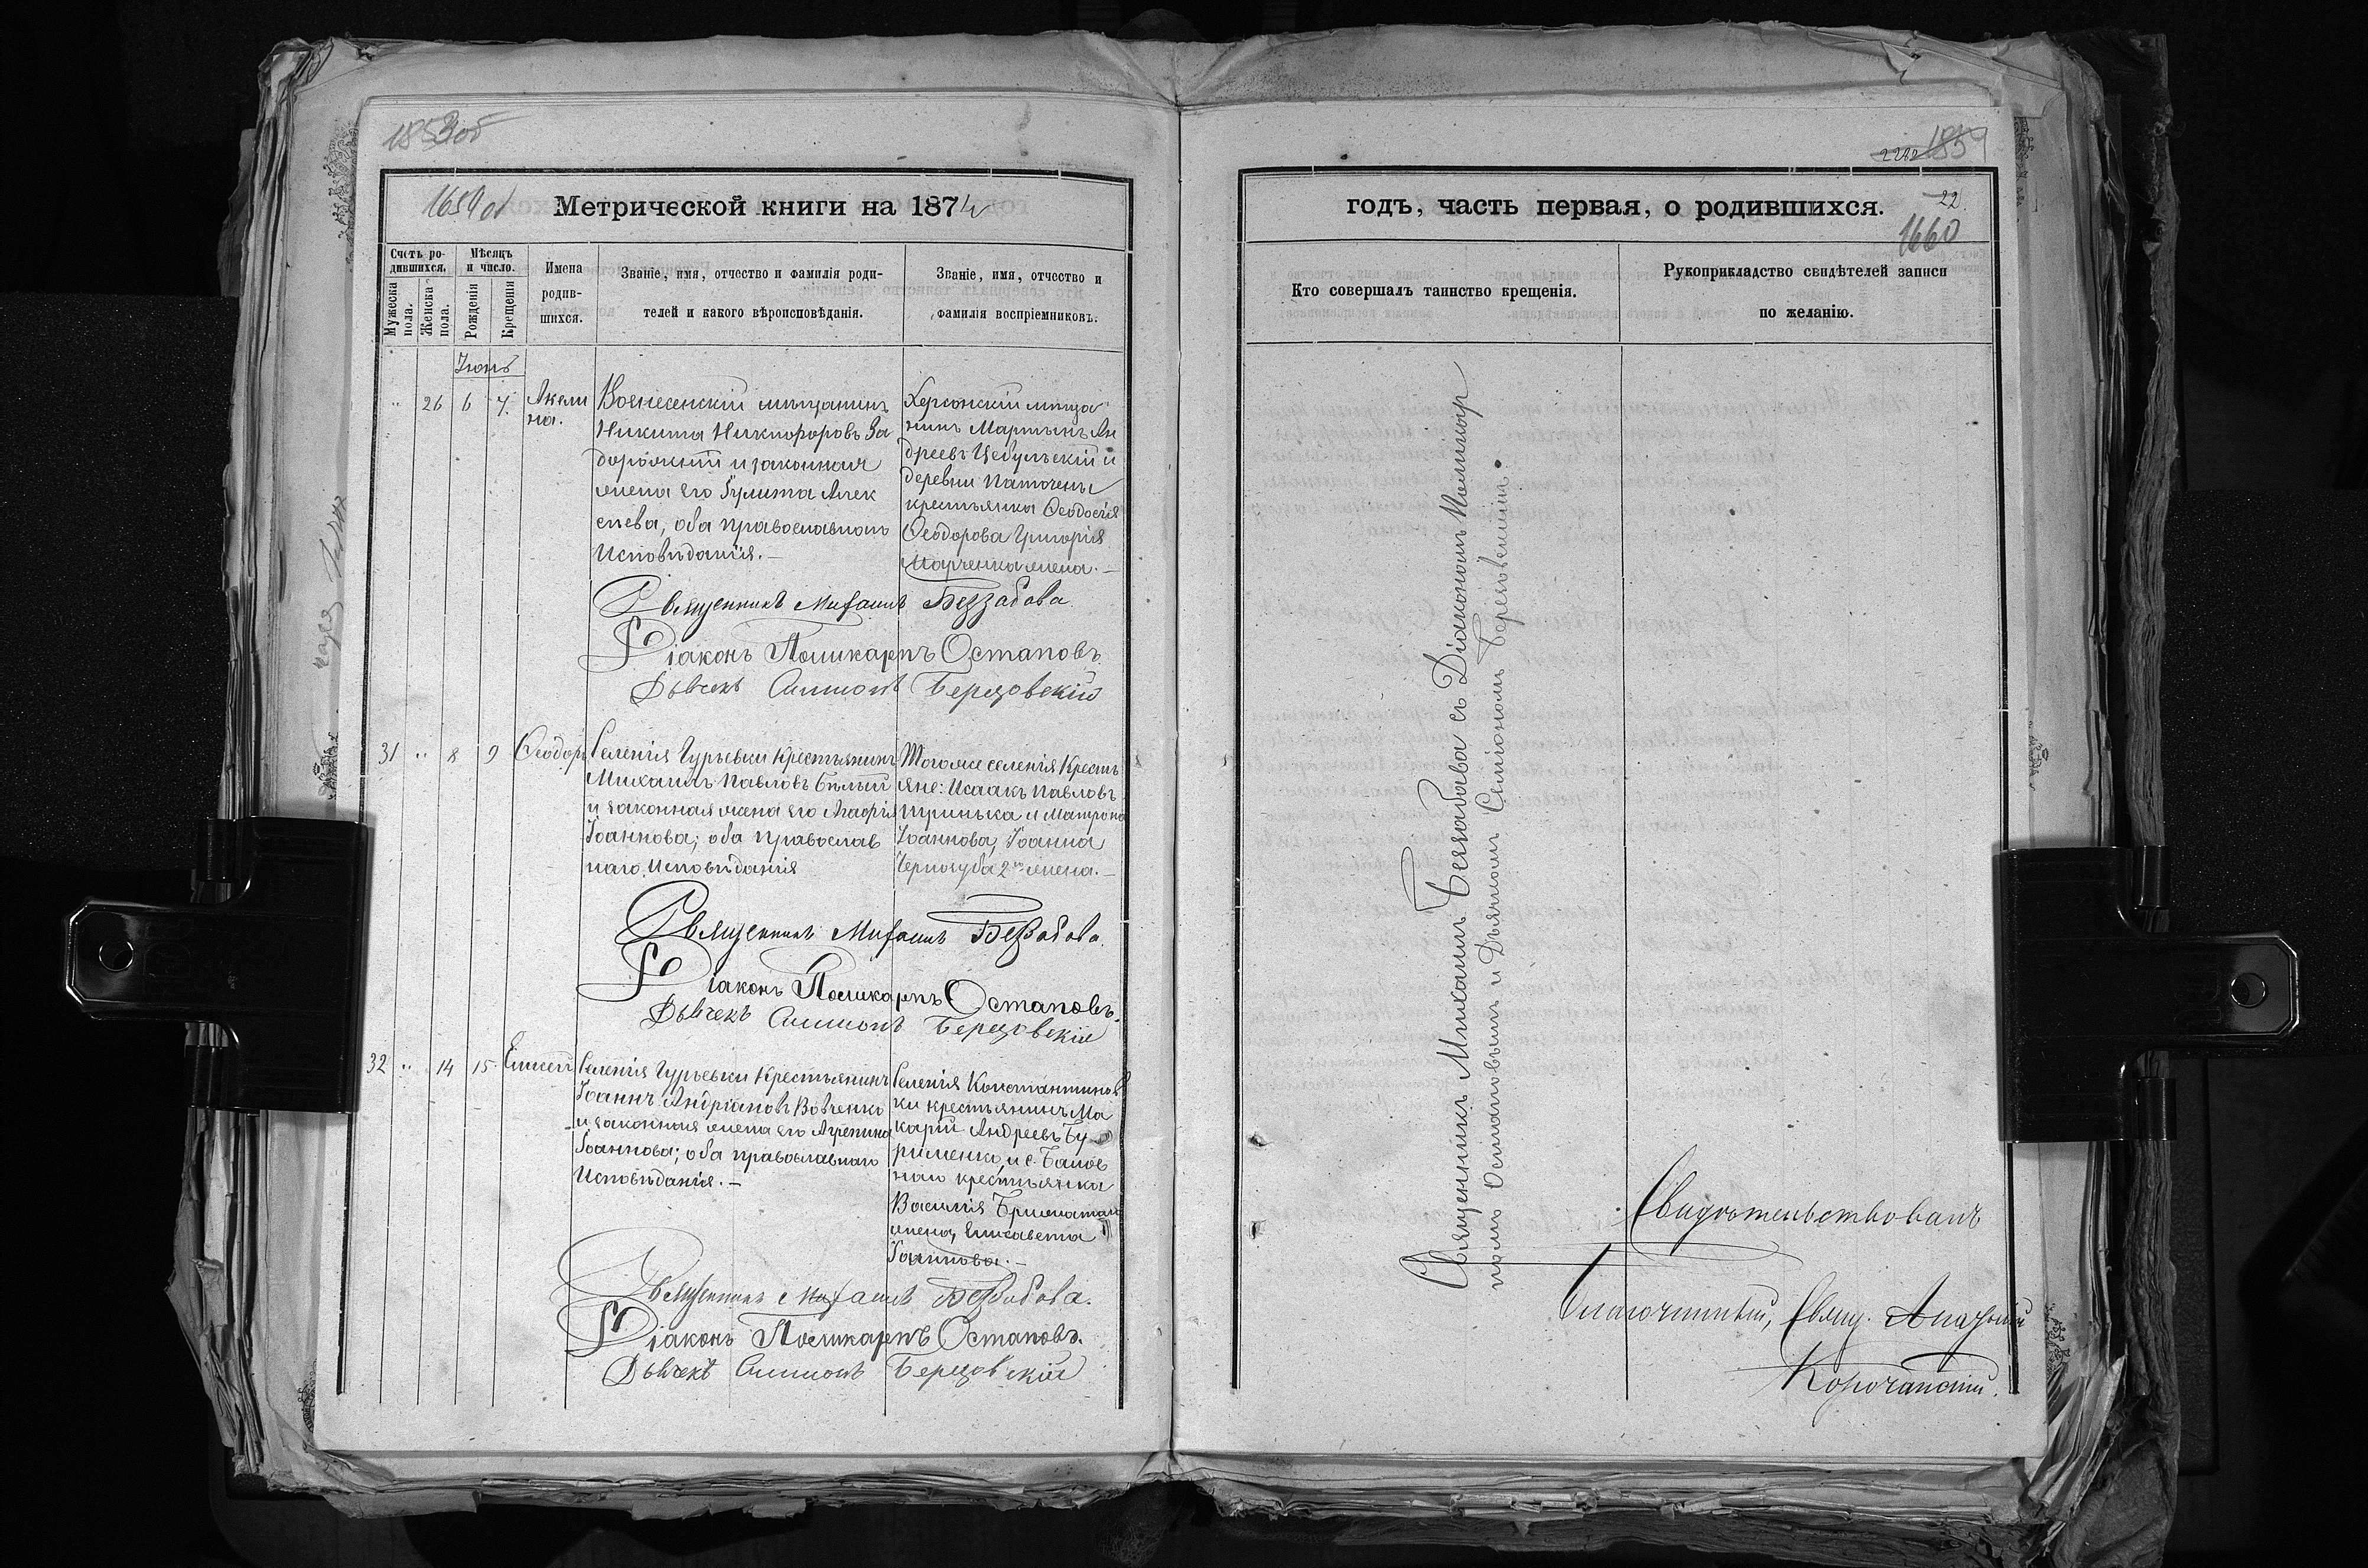 1853об
1659об
Метрической книги на 1874
Счетъ ро-
дившихся.
Мѣсяцъ
и число.
Мужеска
пола.
Женска
пола.
Рожденія
Крещенія
Имена
родив-
шихся.
Званіе, имя, отчество и фамилія роди-
телей и какого вѣроисповѣданія.
Званіе, имя, отчество и
фамилія воспріемниковъ.
Іюнь
" 26 6 7. Акели
на.
Вознесенскій мѣщанинъ
Никита Никифоровъ За
дорожный и законная
жена его Гулита Алек
сѣева, оба православнаго
Исповѣданія.—
Херсонскій мѣща
нинъ Мартынъ Ан
дреевъ Цебульскій и
деревни
крестьянка Ѳеодосія
Ѳеодорова Григорія
Марченка жена.—
Священникъ Михаилъ Беззабава
Діаконъ Поликарпъ Остаповъ
Дьячекъ Симеонъ Березовскій
31 " 8 9 Ѳеодоръ
Селенія Гурьевки Крестьянинъ
Михаилъ Павловъ Бѣлый
и законная жена его Агафія
Іоаннова; оба православ
наго Исповѣданія
Тогоже селенія Кресть
яне: Исаакъ Павловъ
Гринька и Матрона
Іоаннова, Іоанна
Черногуба 2я жена.—
Священникъ Михаилъ Беззабава.
Діаконъ Поликарпъ Остаповъ.
Дьячекъ Симеонъ Березовскій
32 " 14 15. Елисей
Селенія Гурьевки Крестьянинъ
Іоаннъ Андріановъ Вовченко
и законная жена его Агрепина
Іоаннова; оба православнаго
Исповѣданія.—
Селенія Константинов
ки крестьянинъ Ма
карій Андреевъ Бу
рименко, и с. Балов
наго крестьянка
Василія
жена, Елисавета
Іоаннова.—
Священникъ Михаилъ Беззабава.
Діаконъ Поликарпъ Остаповъ.
Дьячекъ Симеонъ Березовскій
1859
22
1660
годъ, часть первая, о родившихся.
Кто совершалъ таинство крещенія.
Рукоприкладство свидѣтелей записи
по желанію.
Священникъ Михаилъ Беззабава съ Діакономъ Поликар
помъ Остаповымъ и Дьячкомъ Семіономъ Березовскимъ.
Свидѣтельствовалъ
Благочинный, Свящ.